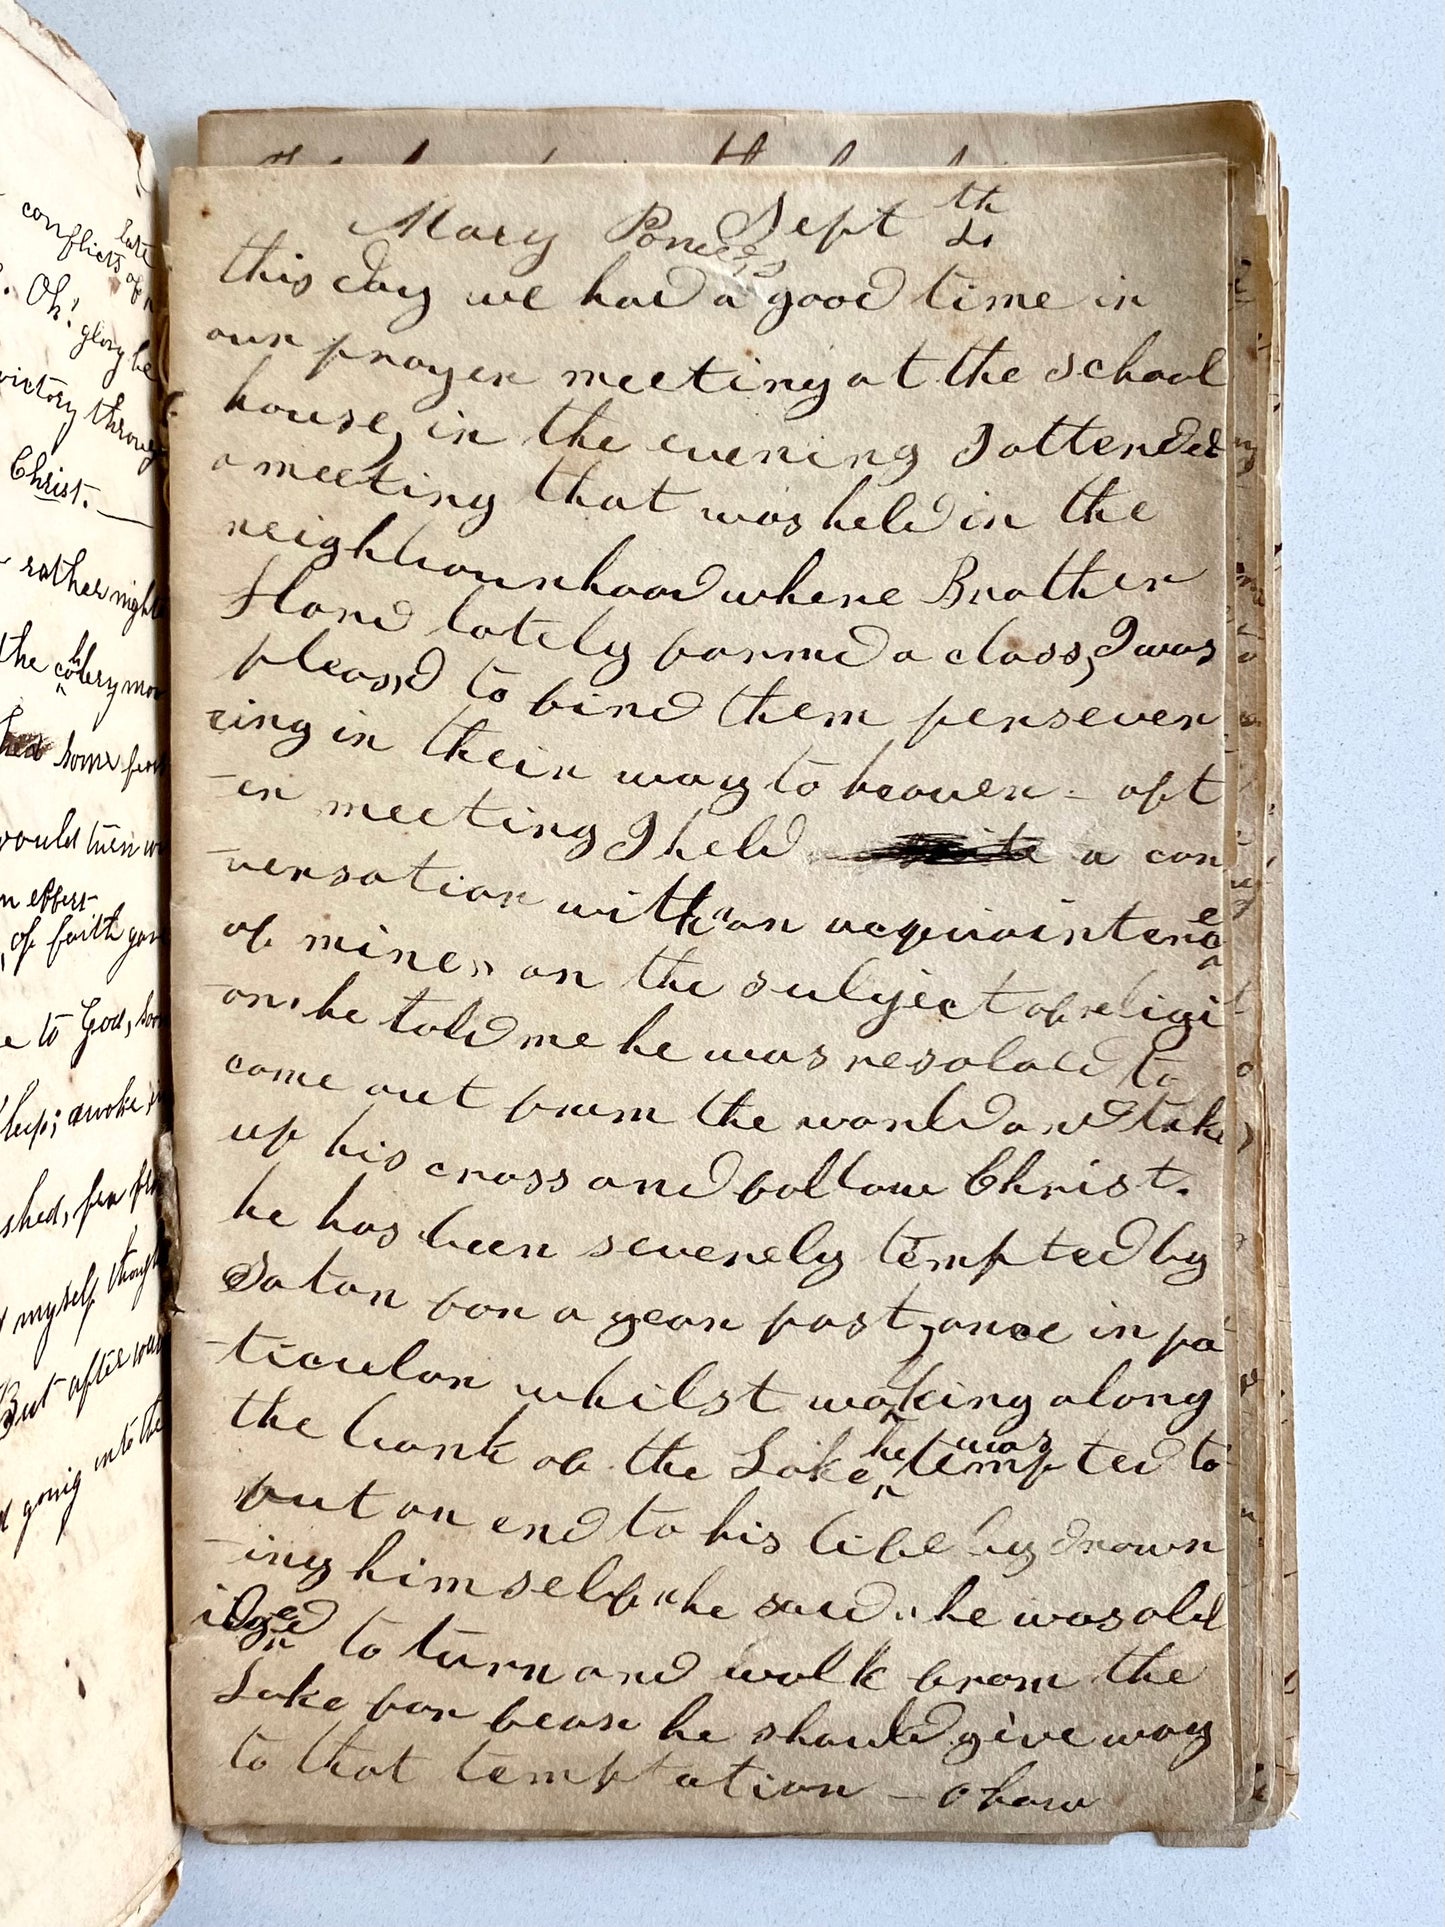 conflicts of
late
Oh! glory be
victory throug
Christ.
rather night
the
some
would turn
effort
of faith
to God,
awoke
shed, for
myself though
But after war
going into the
Mary Sept th
this day we had a good time in
our prayer meeting at the school
house, in the evening I attended
a meeting that was held in the
neighbourhood where Brother
lately formd a class, I was
pleasd to find them persever
ring in their way to heaven - aft
-er meeting I held a con
-versation with an acquaintence
of mine, on the subject of religi
-on. he told me he was resolved to
come out from the world and take
up his cross and follow Christ.
he has been severely tempted by
Satan for a year past, once in pa
-ticular whilst walking along
the bank of the Lake he was tempted to
put an end to his life by drown
-ing himself "he said" he was obl
idged to turn and walk from the
Lake for fear he should give way
to that temptation - O how